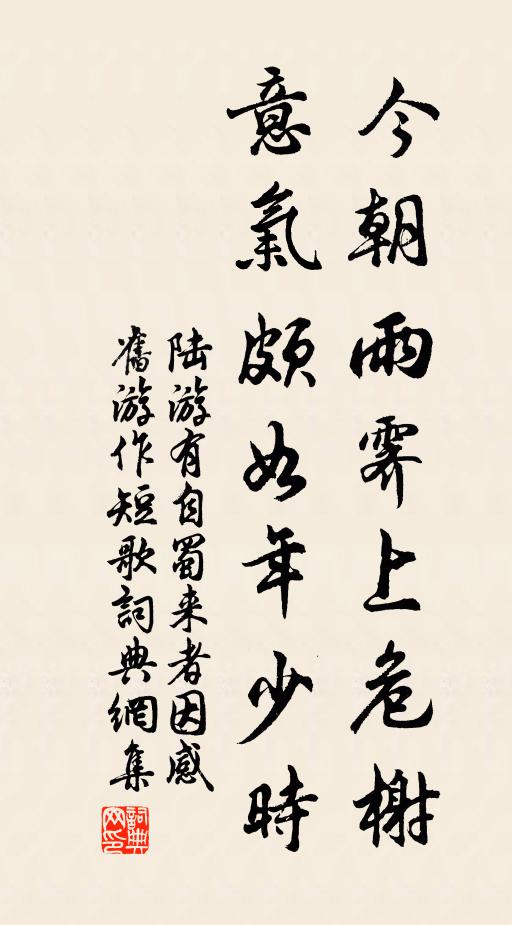 今朝雨霽上危榭
意氣頗如年少時
陸游有自蜀来者因感
舊游作短歌詞典網集
詞典
网印